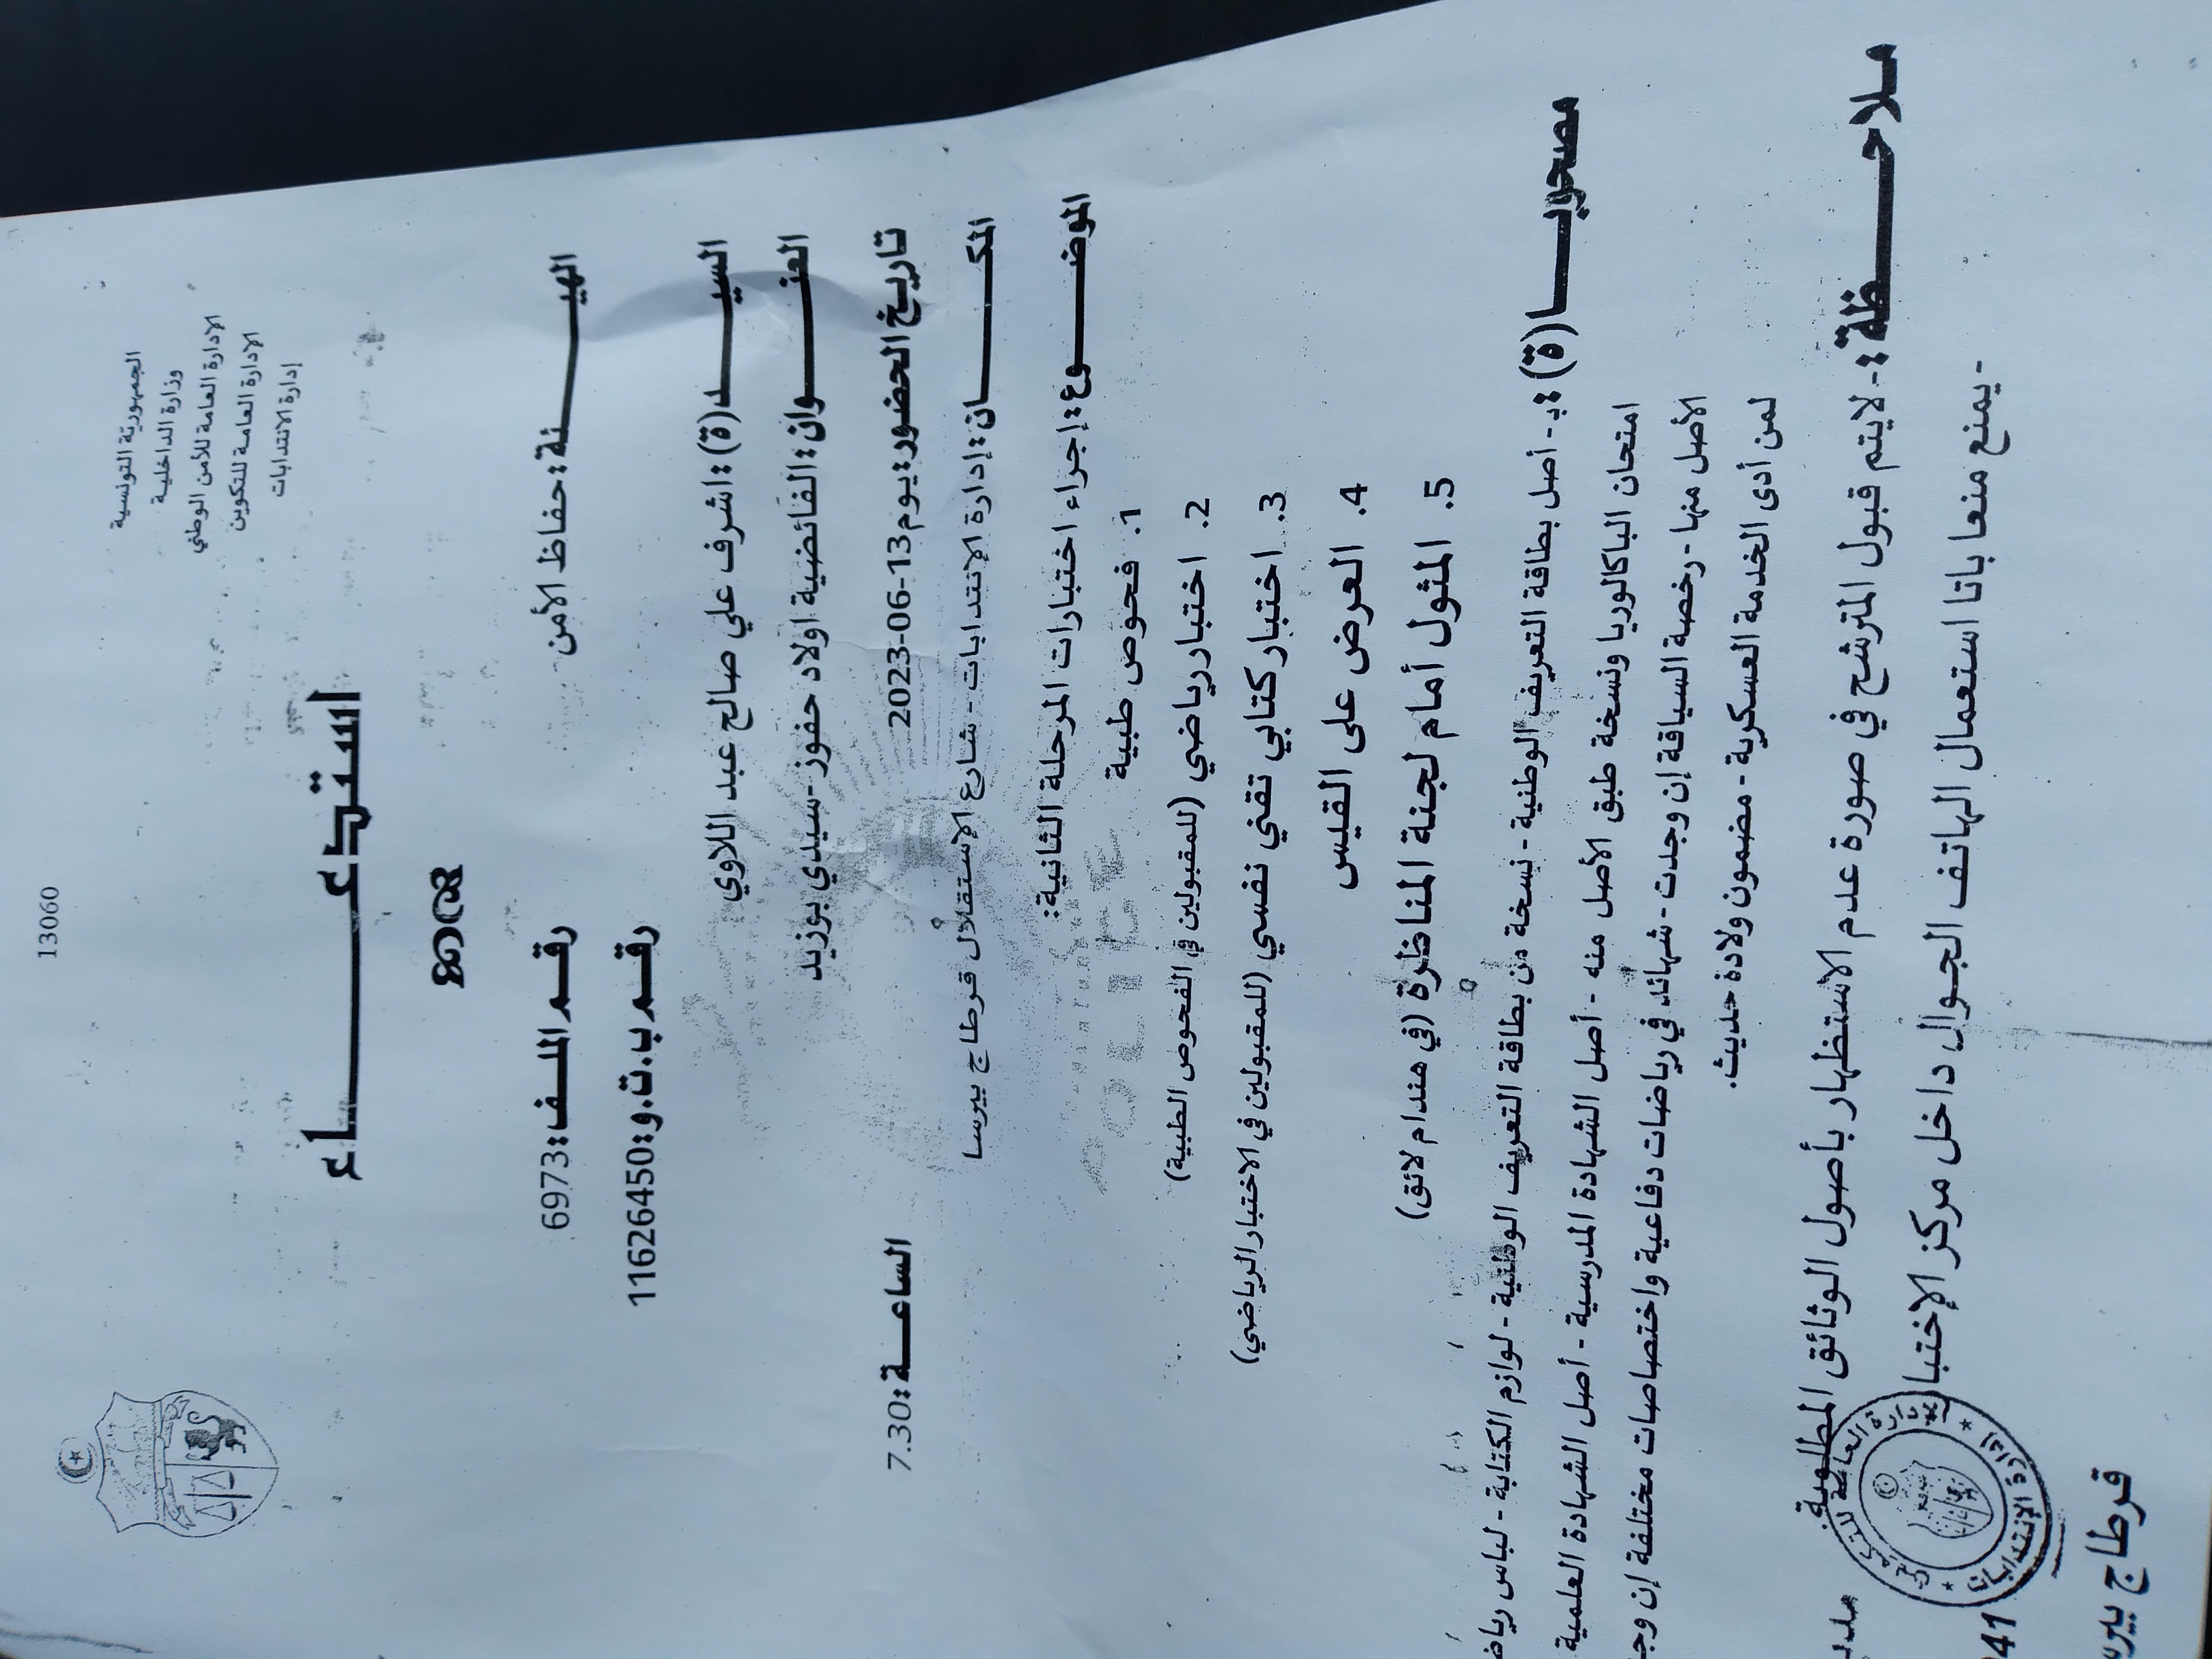 13060
الجمهورية التونسية
وزارة الداخلية
الإدارة العامة للأمن الوطني
الإدارة العامة للتكوين
إدارة الانتدابات
استدعـــــاء
الهيـــــئة: حفاظ الأمن
رقم الملف: 6973
رقم ب.ت.و: 11626450
السيـــــد(ة): اشرف علي صالح عبد اللاوي
العنـــــوان: الفائضية اولاد حفوز-سيدي بوزيد
تاريخ الحضور: يوم 13-06-2023
الساعـــة: 7.30
المكـــــان: إدارة الانتدابات - شارع الإستقلال قرطاج بيرسا
الموضـــــوع: إجراء اختبارات المرحلة الثانية:
1. فحوص طبية
2. اختبار رياضي (للمقبولين في الفحوص الطبية)
3. اختبار كتابي تقني نفسي (للمقبولين في الاختبار الرياضي)
4. العرض على القيس
5. المثول أمام لجنة المناظرة (في هندام لائق)
مصحوبـــا(ة) بـ: - أصل بطاقة التعريف الوطنية - نسخة من بطاقة التعريف الوطنية - لوازم الكتابة - لباس
امتحان الباكالوريا ونسخة طبق الأصل منه - أصل الشهادة المدرسية - أصل الشهادة العلمية
الأصل منها - رخصة السياقة إن وجدت - شهائد في رياضات دفاعية واختصاصات مختلفة إن
لمن أدى الخدمة العسكرية - مضمون ولادة حديث.
ملاحـــــظة: - لا يتم قبول المترشح في صورة عدم الاستظهار بأصول الوثائق المطلوبة.
- يمنع منعا باتا استعمال الهاتف الجوال داخل مركز الإختبار
POLICE
41
قرطاج